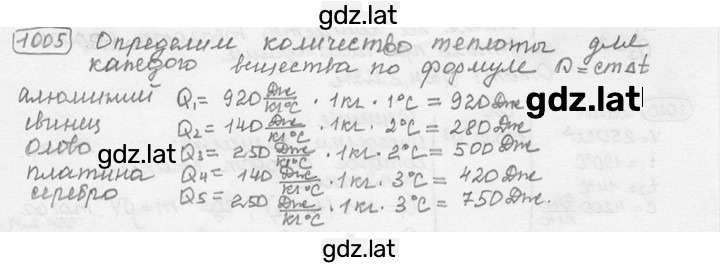 gdz.lat
1005 Определим количество теплоты для
каждого вещества по формуле Q=cmΔt
алюминий Q₁= 920 Дж/кг°C · 1кг · 1°C = 920 Дж
свинец Q₂= 140 Дж/кг°C · 1кг · 2°C = 280 Дж
gdz.lat
олово Q₃= 250 Дж/кг°C · 1кг · 2°C = 500 Дж
gdz.lat
платина Q₄= 140 Дж/кг°C · 1кг · 3°C = 420 Дж
серебро Q₅= 250 Дж/кг°C · 1кг · 3°C = 750 Дж.
gdz.lat